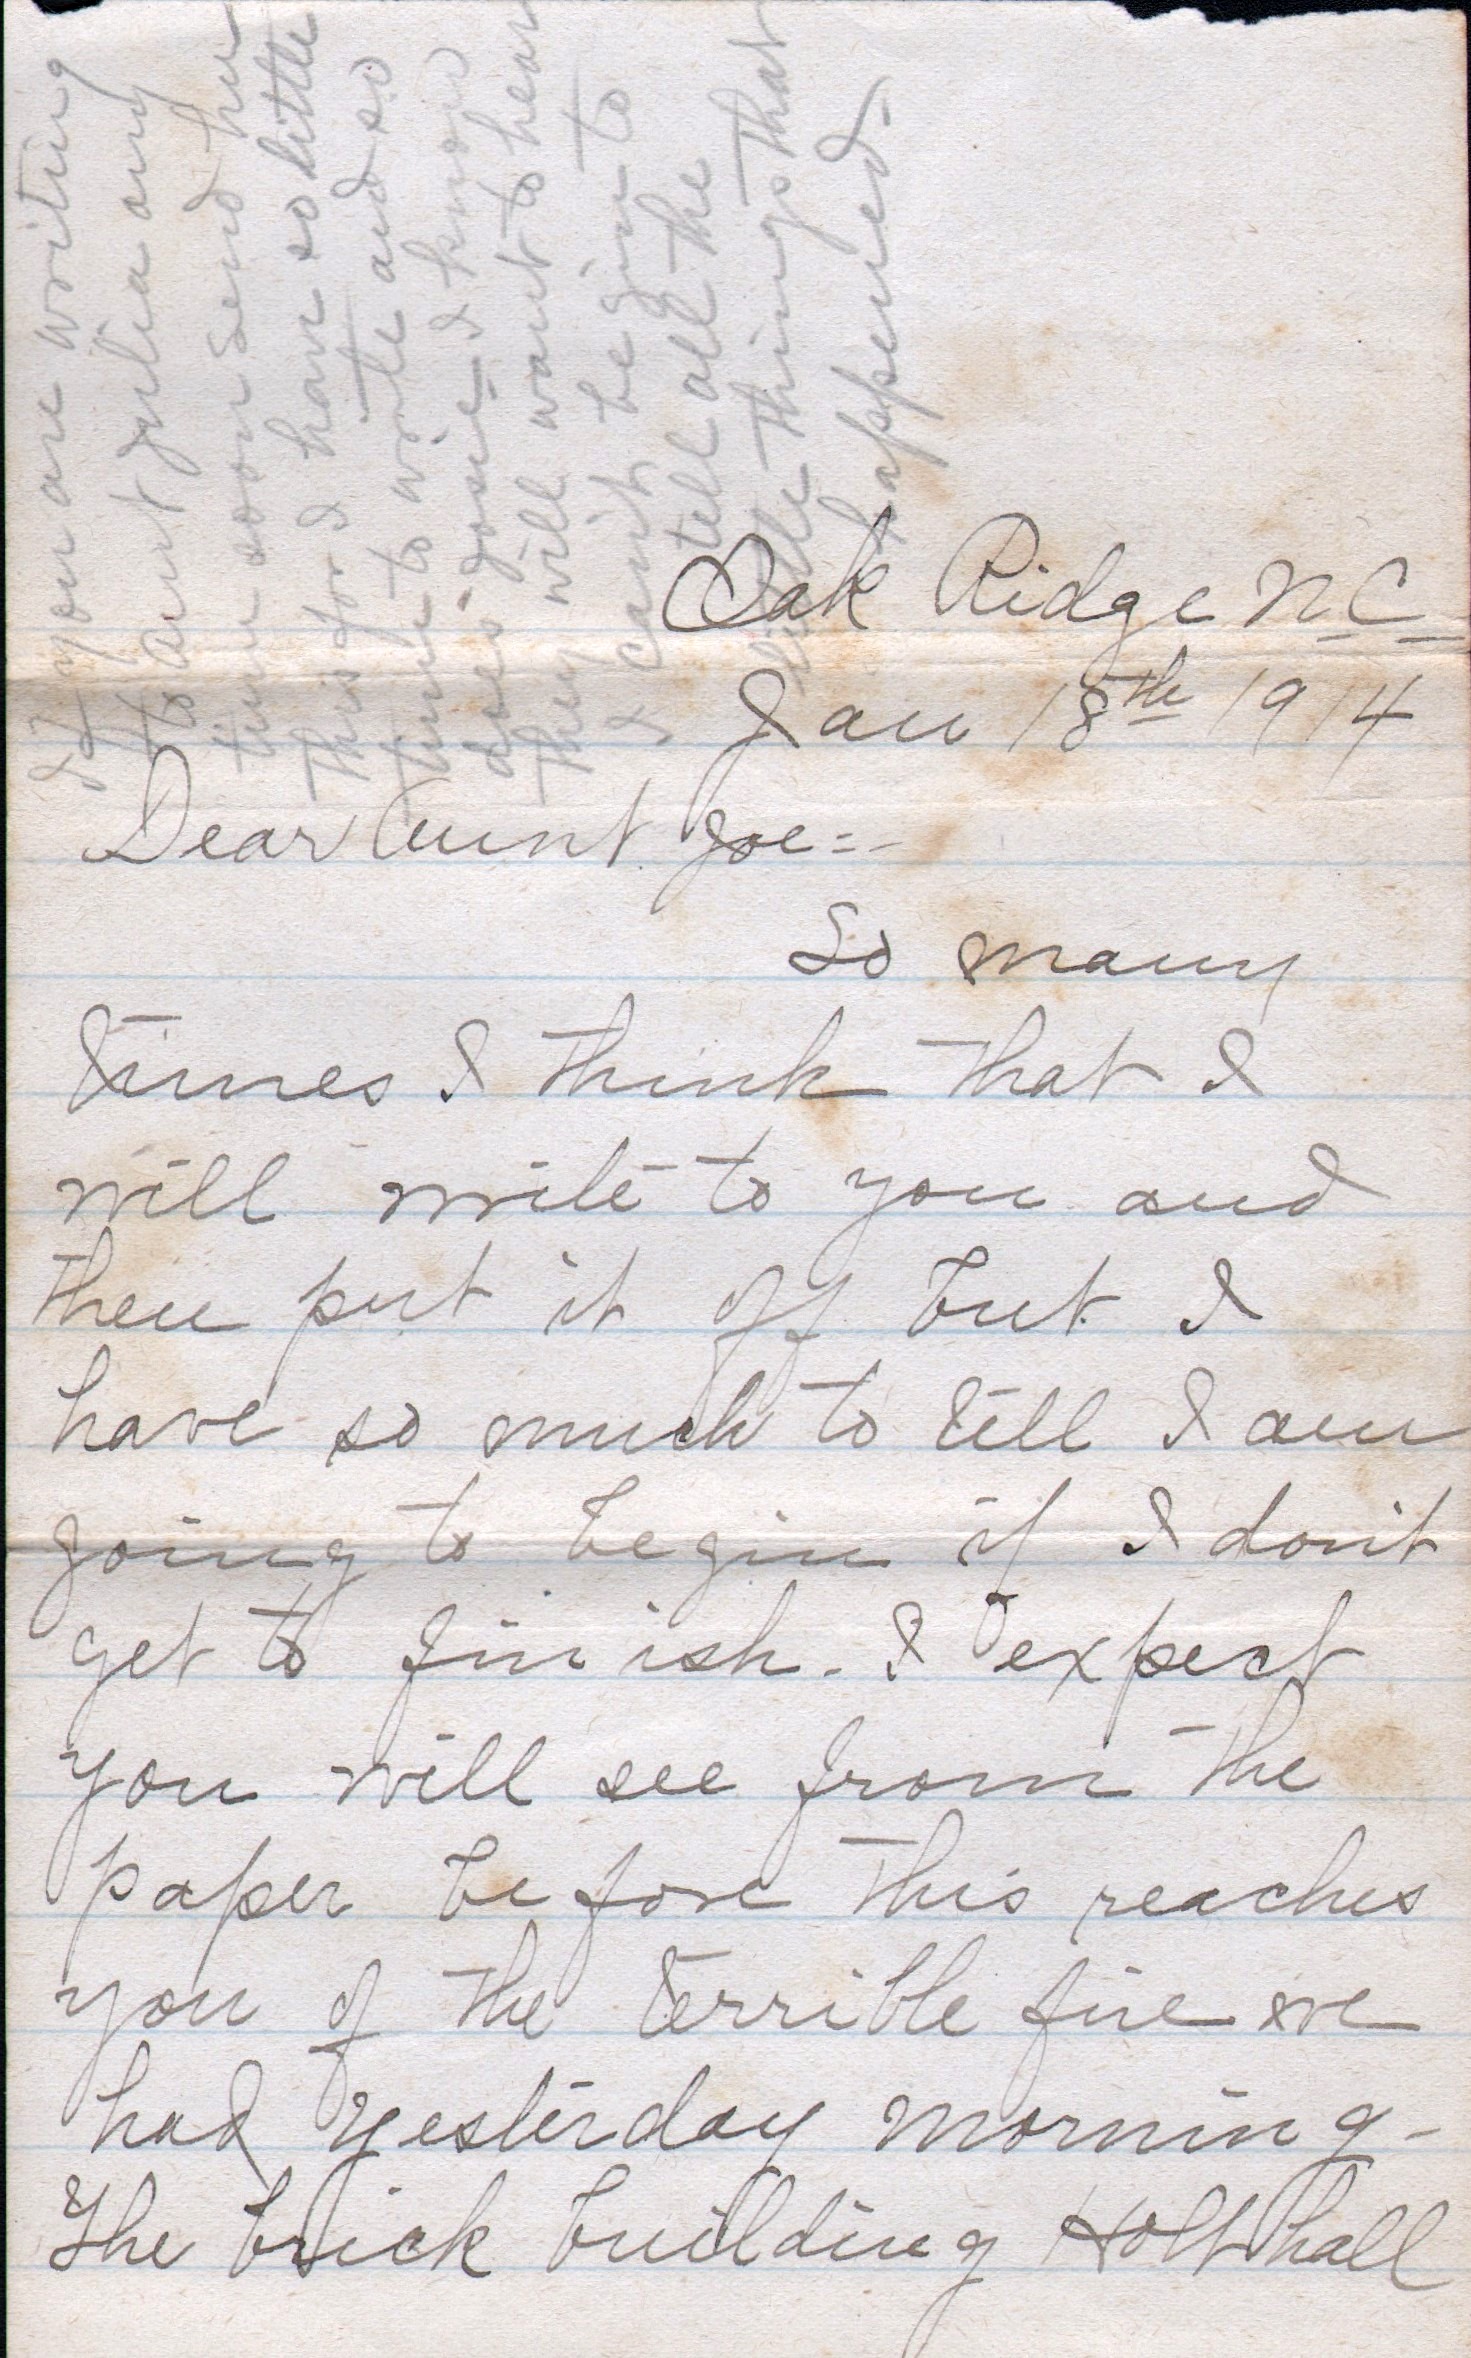 If you are writing
to aunt Julia any
time soon send her
this for I have so little
time to write and so
does Josie - I know
they will want to hear
I can't begin to
tell all the
little things that
happened.
Oak Ridge N.C.
Jan 18th 1914
Dear Aunt Joe:-
So many
times I think that I
will write to you and
then put it off but I
have so much to tell I am
going to begin if I don't
get to finish. I expect
you will see from the
paper before this reaches
you of the terrible fire we
had yesterday morning-
The brick building Holt hall